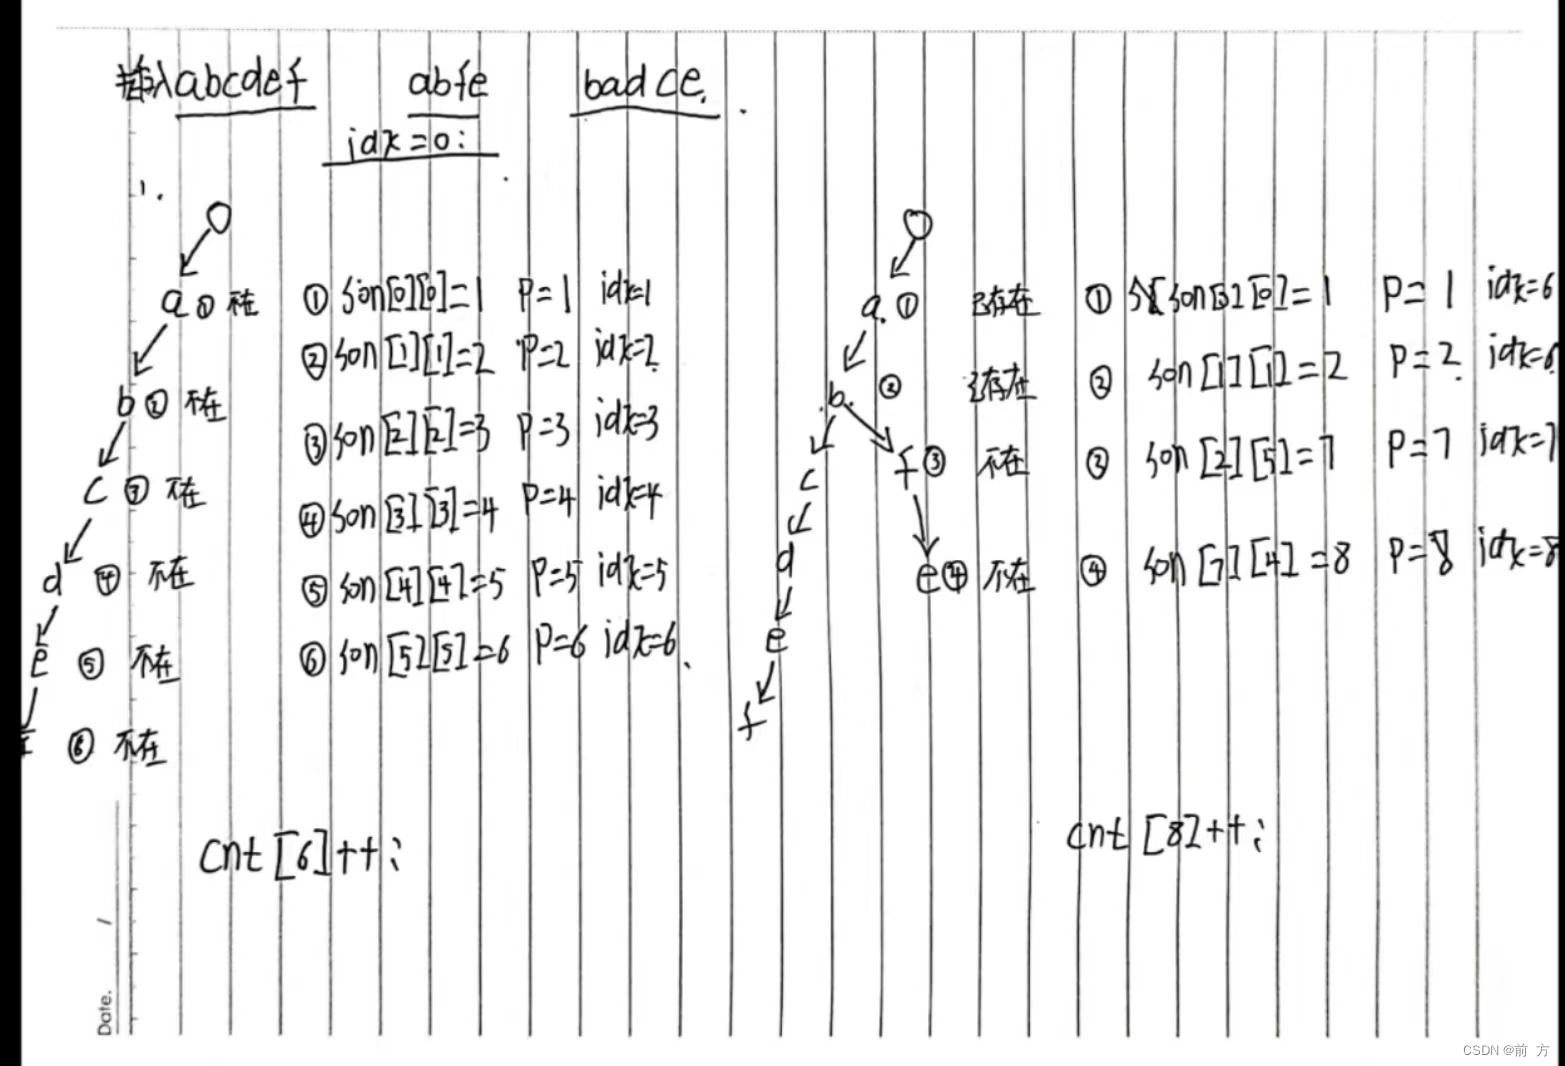 输入abcdef abfe badce.
idx=0;
1.
a ① 不在
b ② 不在
c ③ 不在
d ④ 不在
e ⑤ 不在
⑥ 不在
① son[0][0]=1 P=1 idx=1
② son[1][1]=2 P=2 idx=2
③ son[2][2]=3 P=3 idx=3
④ son[3][3]=4 P=4 idx=4
⑤ son[4][4]=5 P=5 idx=5
⑥ son[5][5]=6 P=6 idx=6
cnt[6]++;
a. ① 已存在
b. ② 已存在
c f ③ 不在
d e ④ 不在
e
f
① son[0][0]=1 P=1 idx=6
② son[1][1]=2 P=2 idx=6
son[2][5]=7 P=7 idx=7
④ son[7][4]=8 P=8 idx=8
cnt[8]++;
Date. /
CSDN @前 方